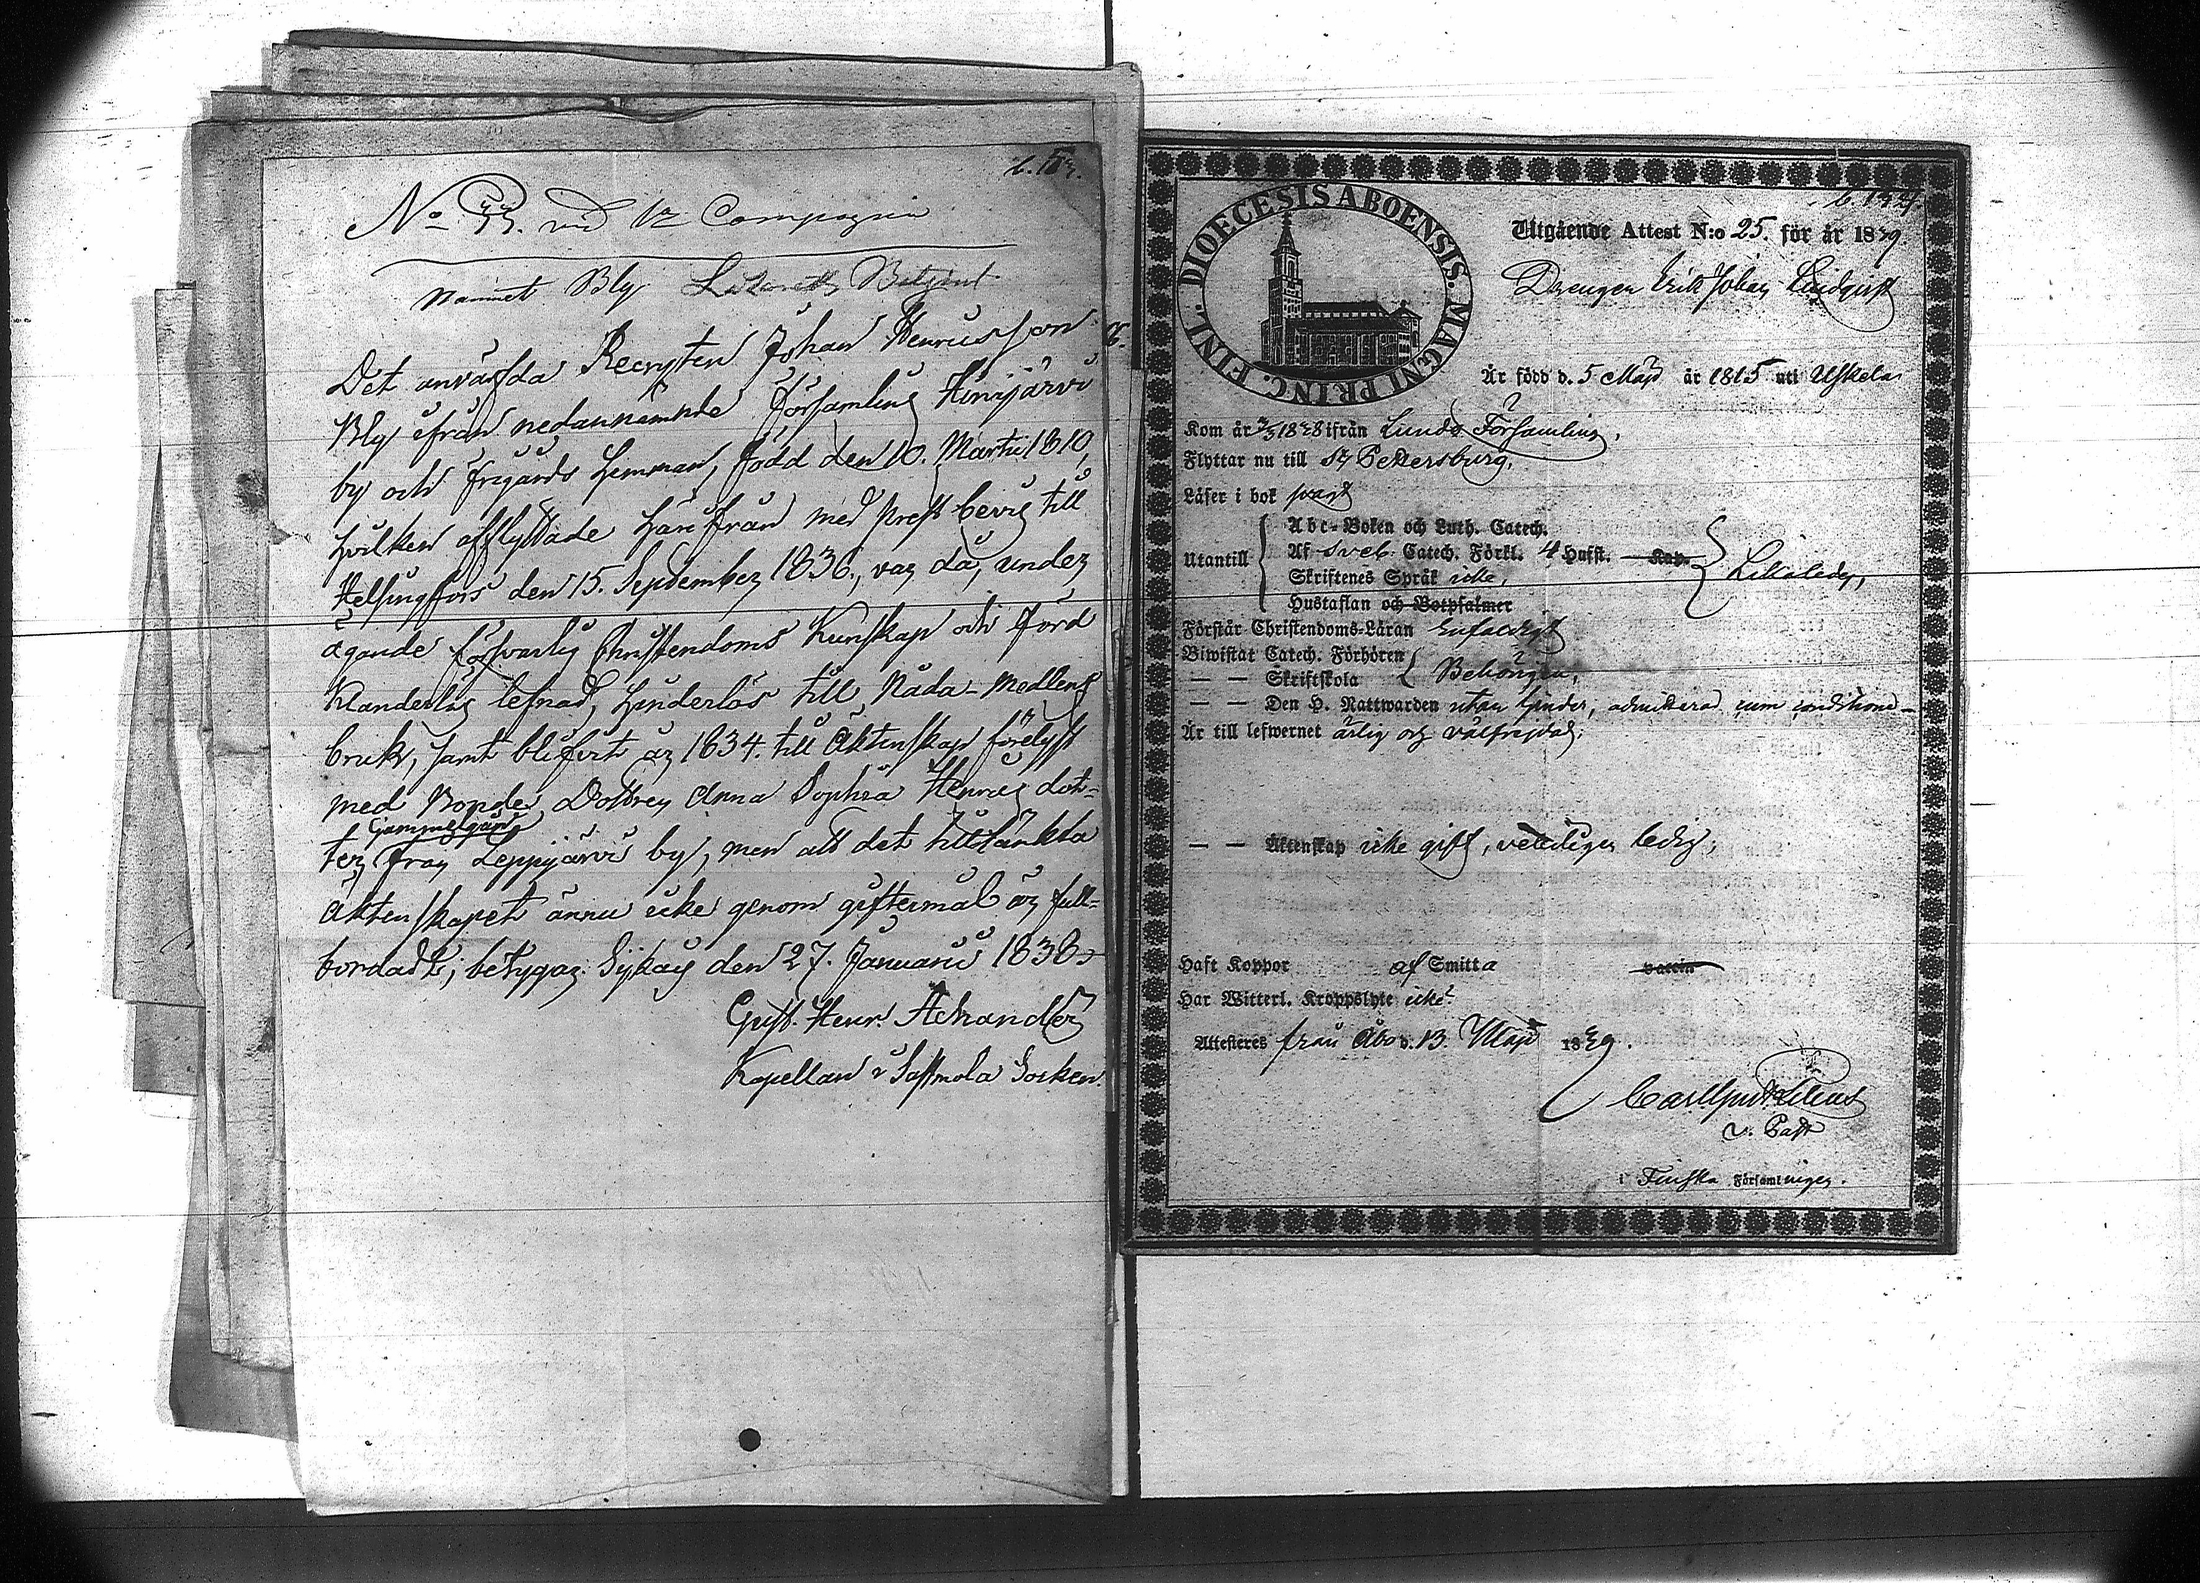 No 33. vid 1/2 Compagnie
namnet Bly
Det anvärfda Recryten Johan Henricsson
Bly ifrån nedannämnde Församling Hinnjärvi
by och frigårds hemman, född den 10. Martii 1810,
hvilken afflyttade härifrån med prest bevis till
Helsingfors den 15. September 1836., var då, under
ägande försvarlig Christendoms kunskap och förd
klanderlös lefnad, hinderlös till Nåda-medlens
bruk, samt blifvit år 1834. till Äktenskap förelyst
med Bonde Dottren Anna Sophia Henrics dot-
Gammelgård
ter från Leppijärvi by, men att det tilltänkta
äktenskapet ännu icke genom giftermål är full-
bordadt; betygar. Siikais den 27. Januarii 1838
Gust. Henr. Achrander
Kapellan i Sastmola Socken.
DIOECESIS ABOENSIS. MAGNI PRINC. FINL.
Utgående Attest N:o 25. för år 1839
Drengen Erik Johan Lindqvist
Är född d. 5 Maji år 1815 uti Uskela
Kom år 1838 ifrån Lundo Församling,
Flyttar nu till St Pettersburg,
Läser i bok svagt
Utantill
Abc-Boken och Luth. Catech.
Af Sveb. Catech. Förkl. 4 Hufst. Kap.
Skriftenes Språk icke,
Hustaflan och Botpsalmer
Likaledes,
Förstår Christendoms-Läran Enfaldigt
Biwistat Catech. Förhören
— — Skriftskola
Behörigen,
— — Den H. Nattwarden utan hinder, admitterad cum conditione
Är till lefwernet ärlig och välfrejdad;
— — Äktenskap icke gift, veterligen ledig;
Haft Koppor af Smitta vaccin
Har Witterl. Kroppslyte icke
Attesteres från Åbo d. 13. Maji 1839.
v. Past
i Finska Församlingen.